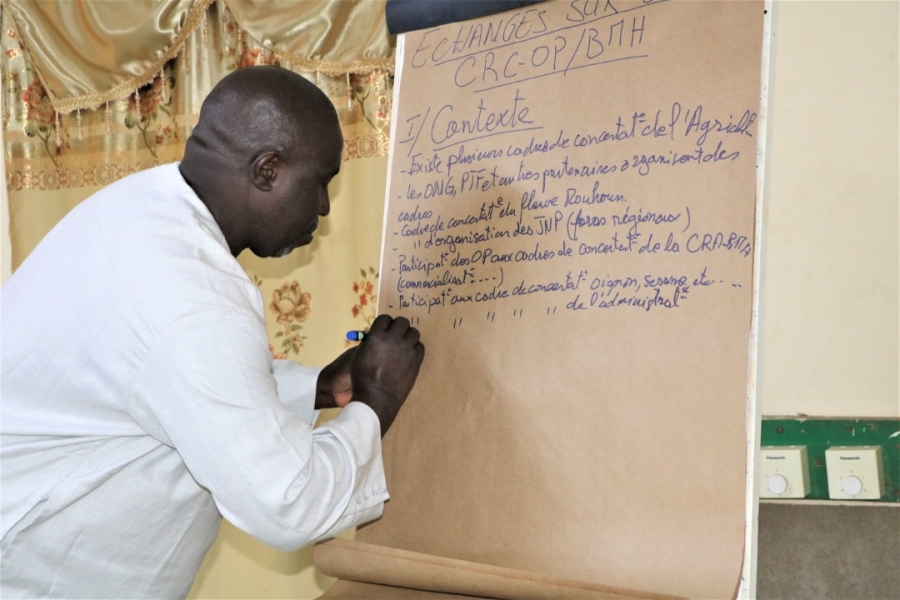 ECHANGES SUR
CRC-OP/BMH
I/ Contexte
- Existe plusieurs cadres de concertat° de l'Agricult
- Les ONG, PTF et autres partenaires organisent des
cadres
- Cadre de concertat° du fleuve Mouhoun
- " d'organisation des JNP (foras régionaux)
- Participat° des OP aux cadres de concertat° de la CRA-BMH
(commercialisat° ....)
- Participat° aux cadre de concertat° oignon, sesame etc.. ..
- " " " " " de l'administrat°
Panasonic
Panasonic